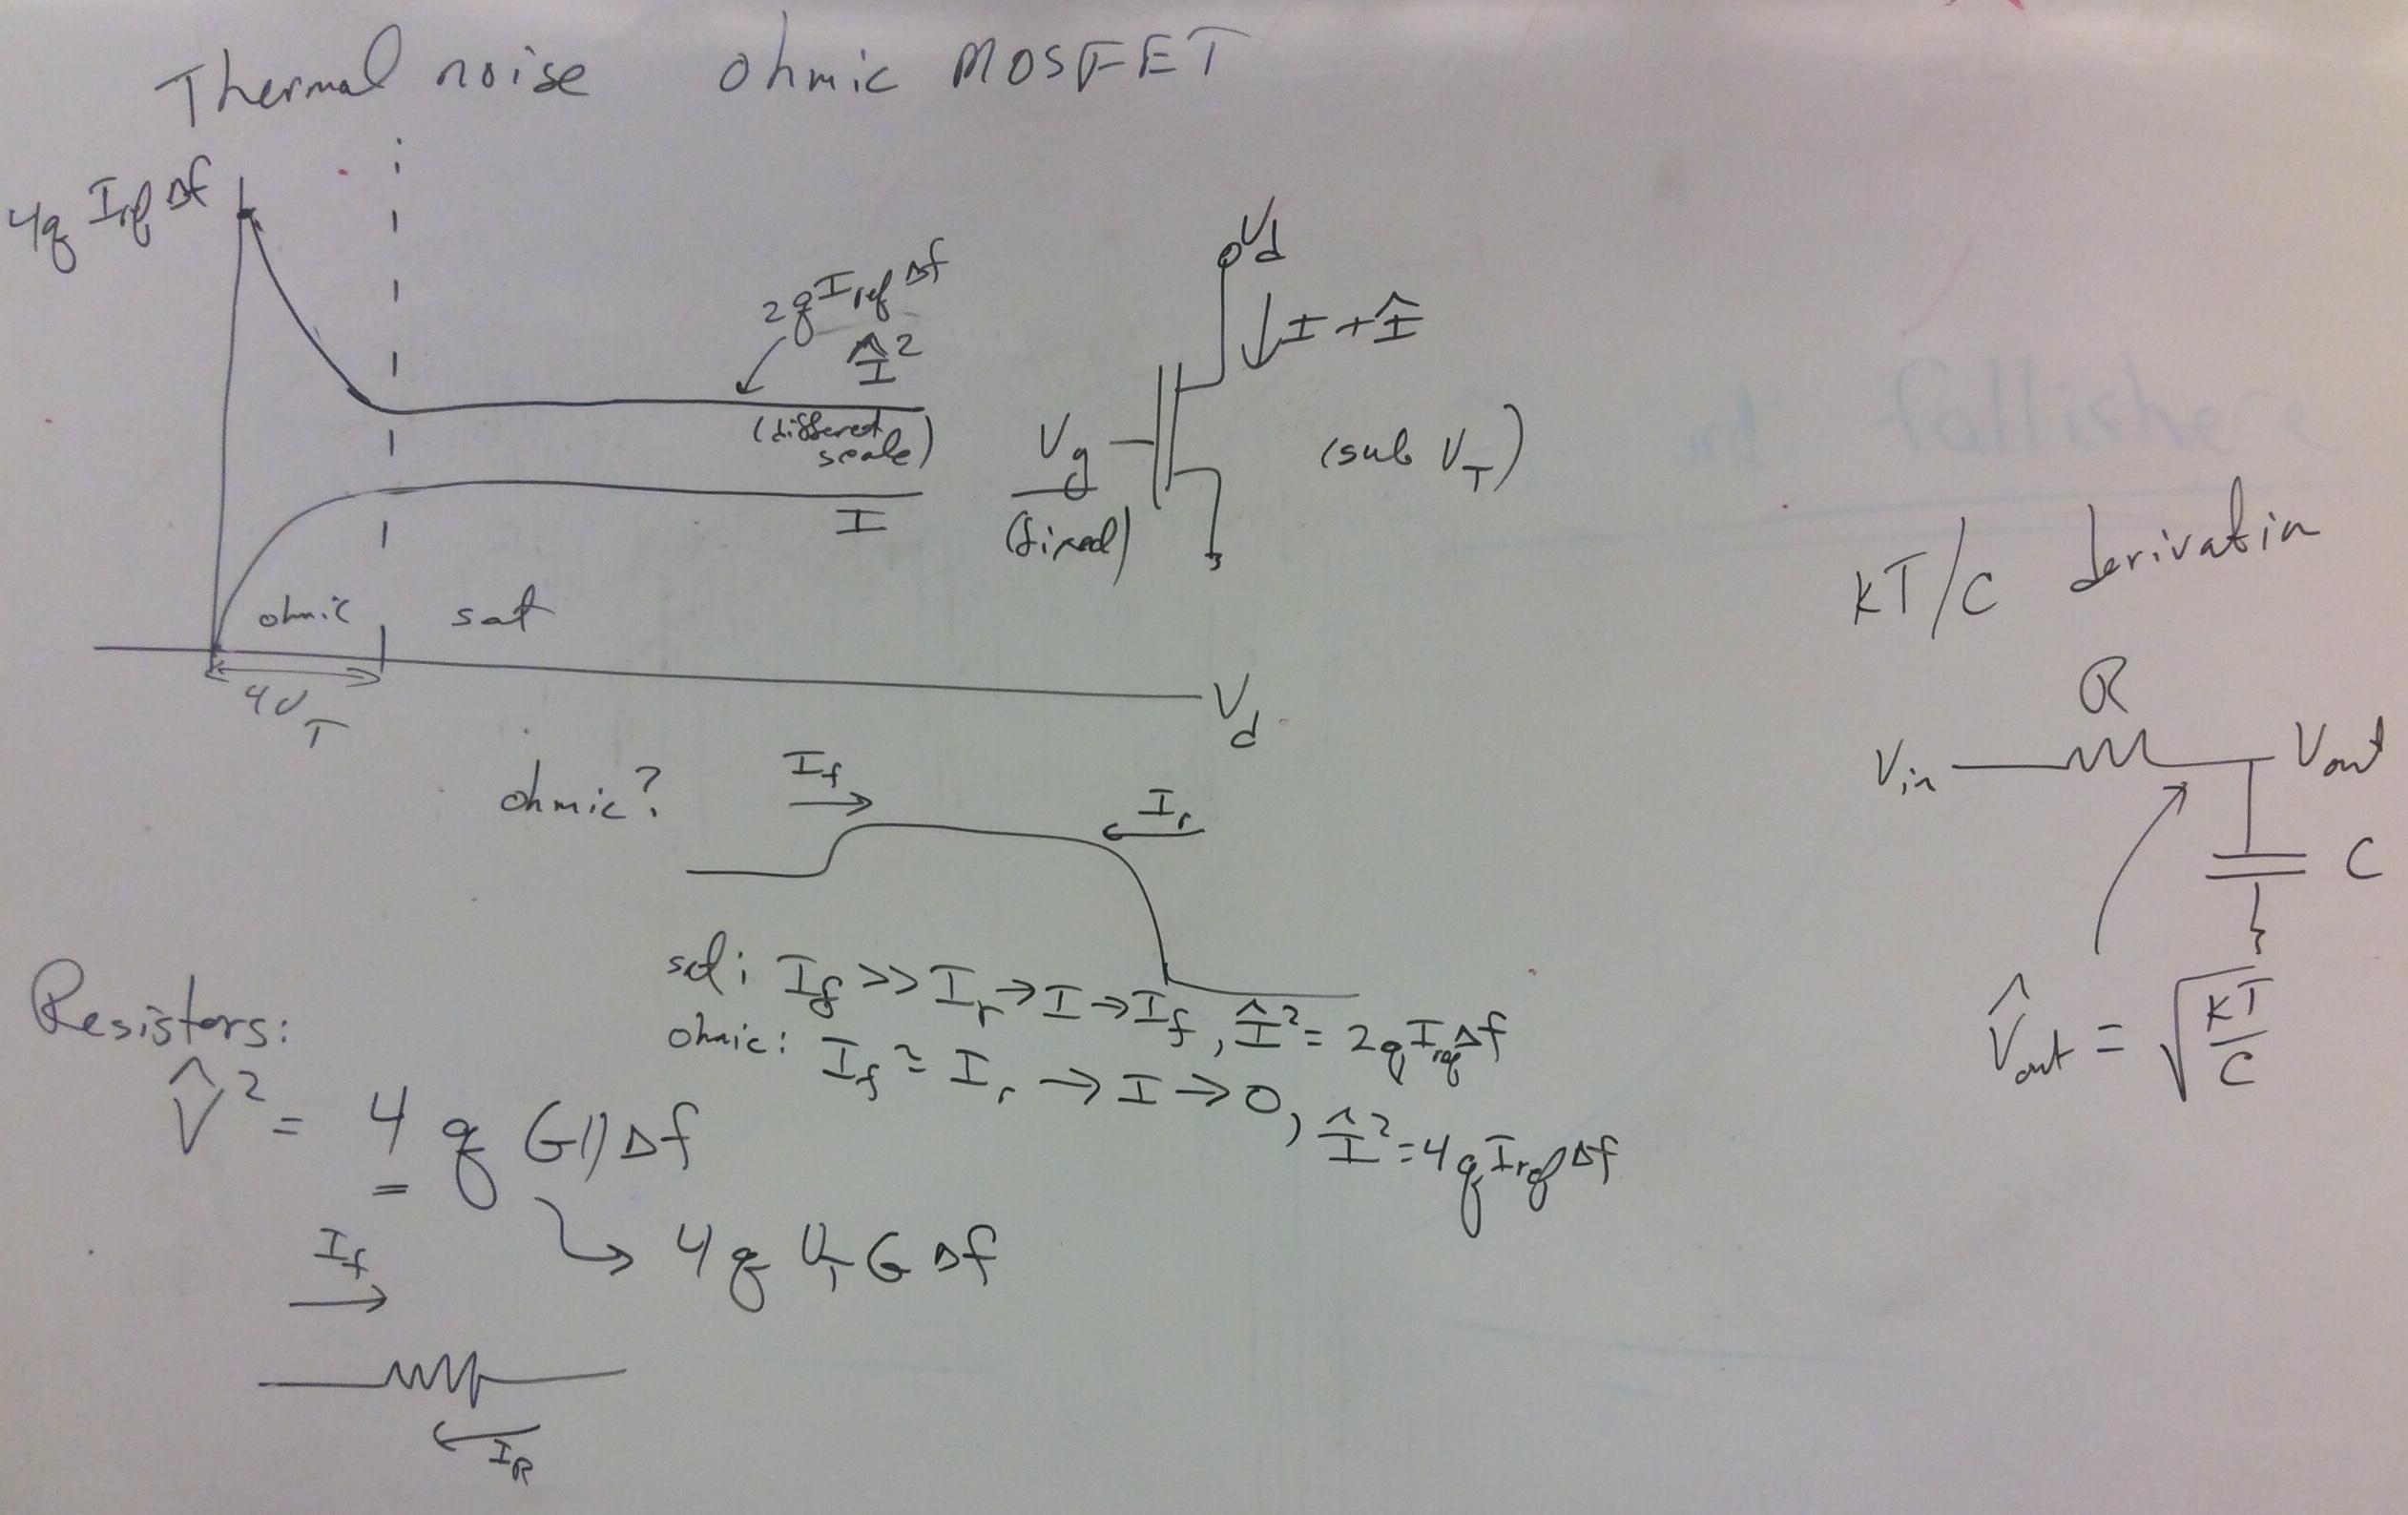 Thermal noise ohmic MOSFET
4q Iref Δf
2q Iref Δf
Î²
(different
scale)
I
ohmic sat
4U_T
V_d
V_d
↓ I + Î
V_g
(fixed)
(sub V_T)
ohmic?
I_f →
← I_r
sat: I_f >> I_r → I → I_f, Î² = 2q Iref Δf
ohmic: I_f ≈ I_r → I → 0, Î² = 4q Iref Δf
Resistors:
V̂² = 4 q G Δf
→ 4 q U_T G Δf
I_f →
← I_R
kT/C derivatin
R
V_in V_out
C
V̂_out = √(kT/C)
fallishere